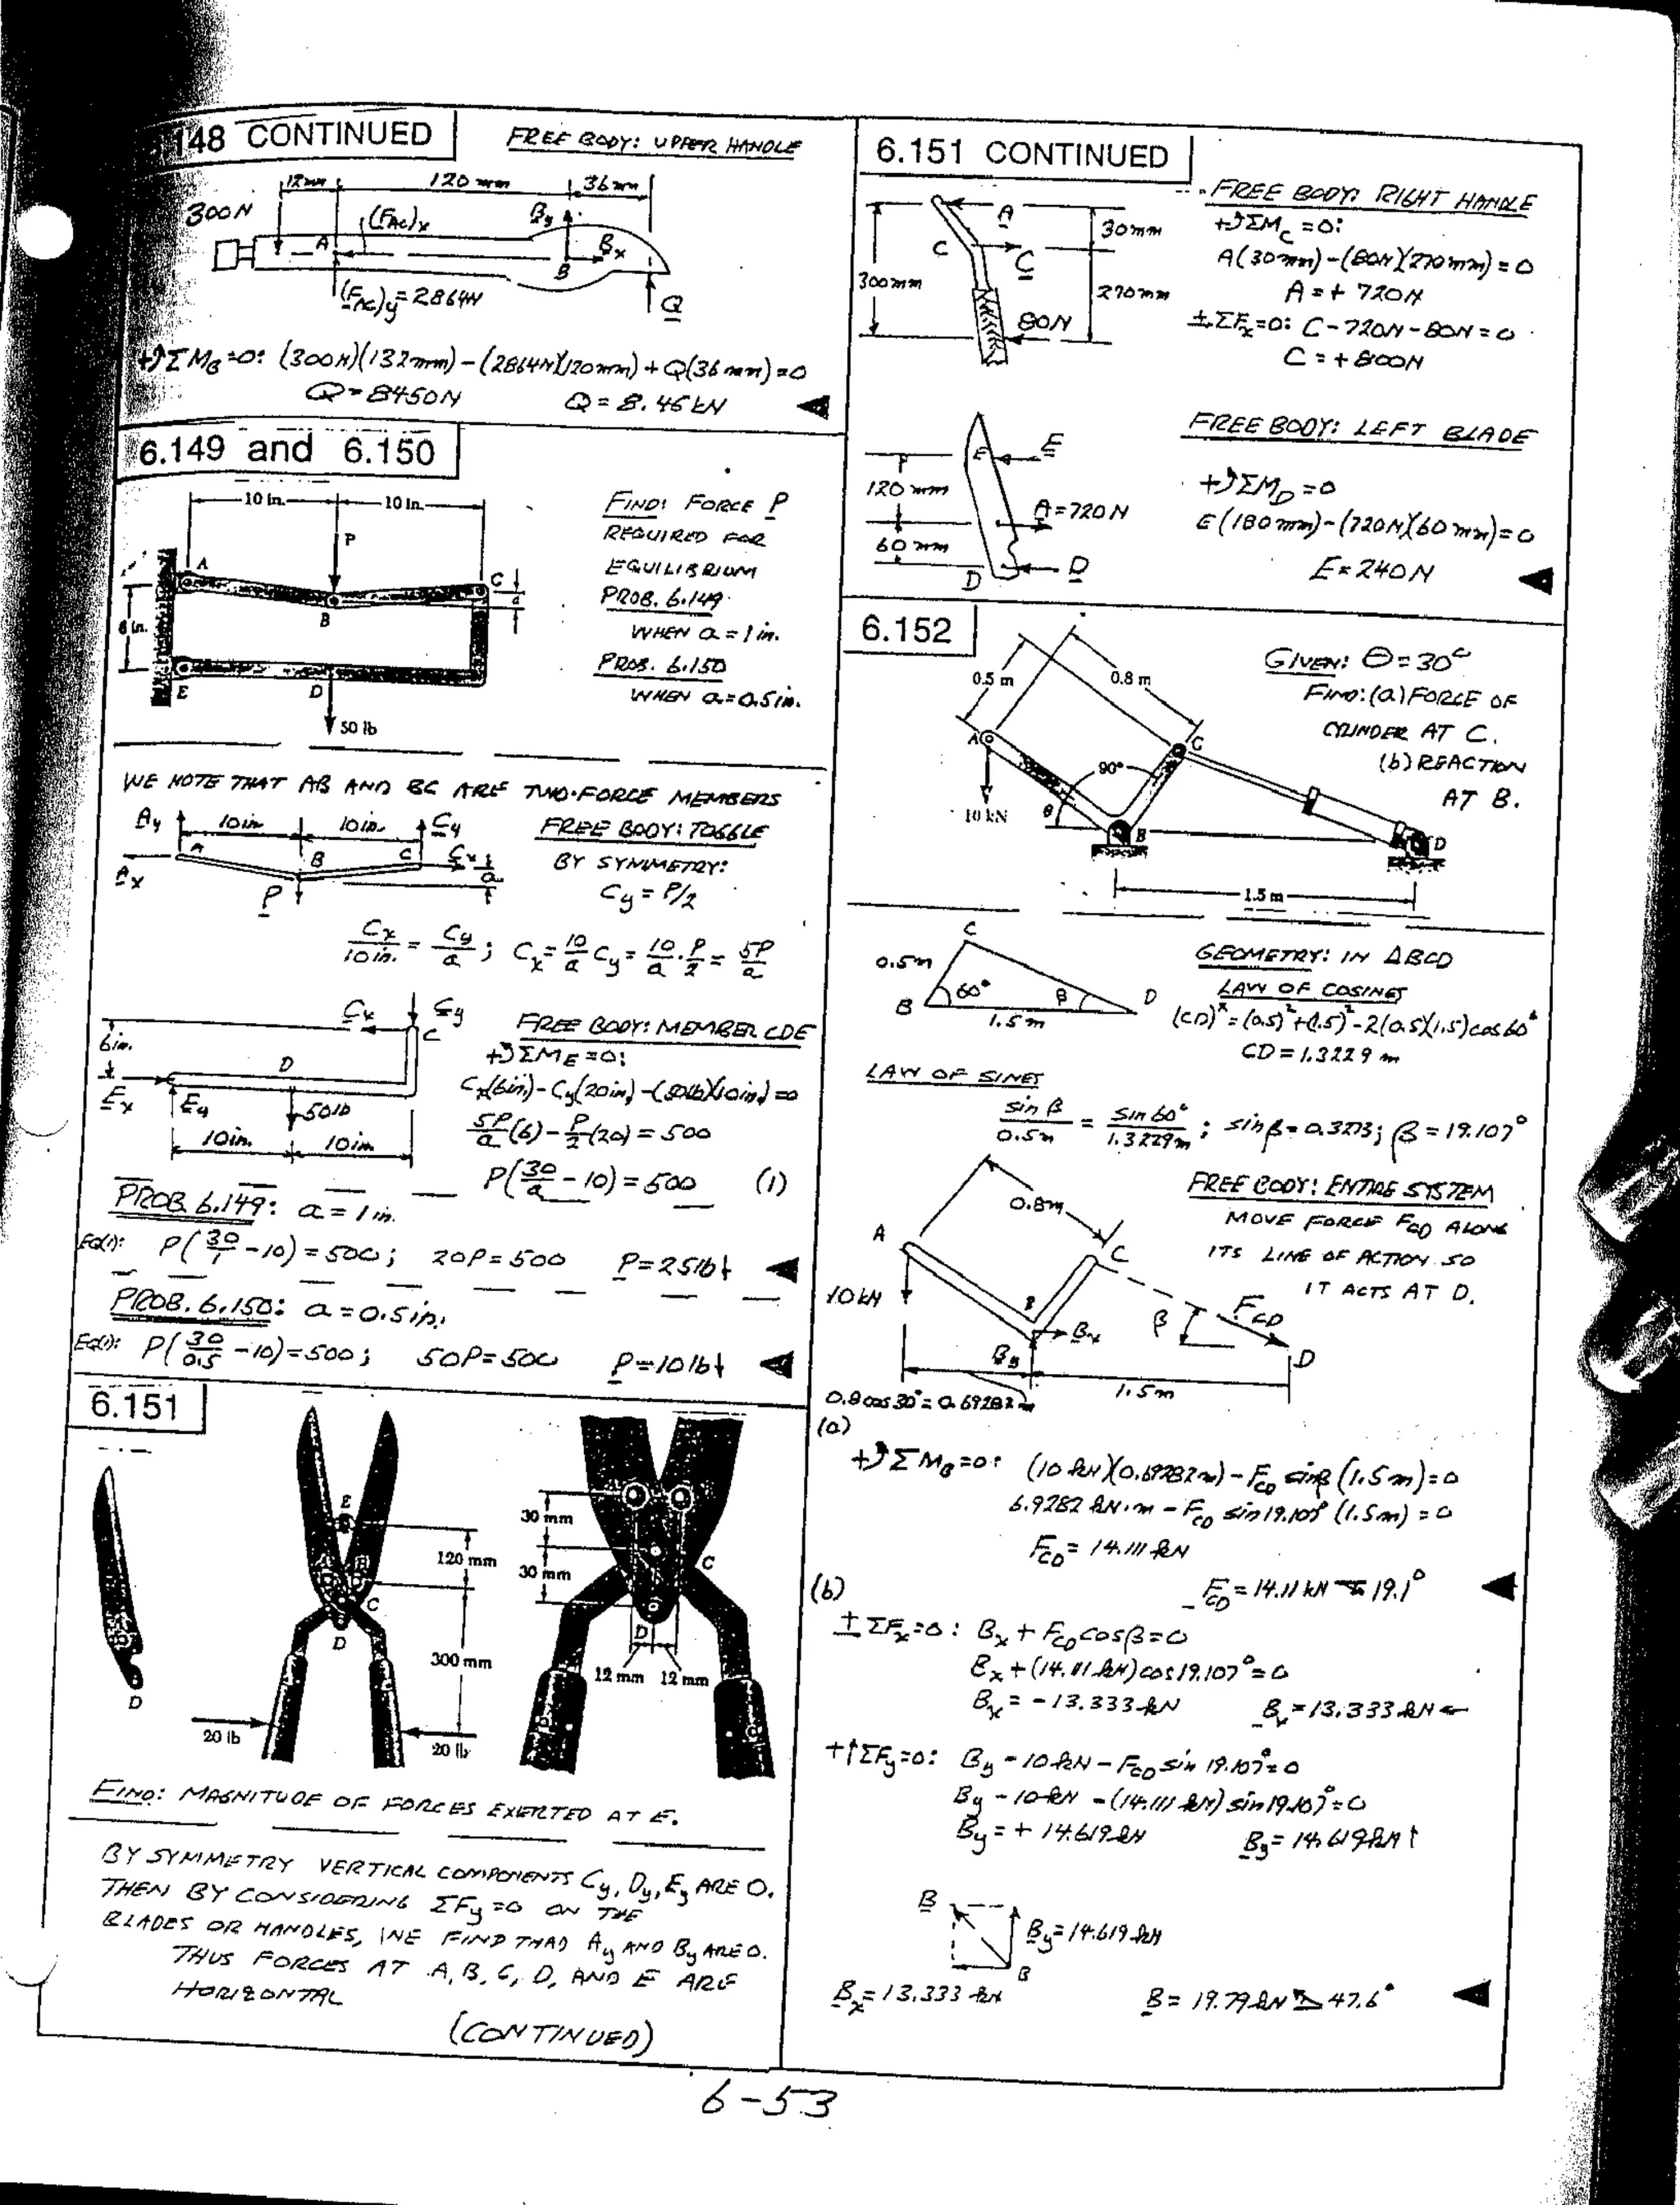 148 CONTINUED
FREE BODY: UPPER HANDLE
12mm 120 mm 36mm
300N (F_AC)x By
A Bx
B
(F_AC)y=2864N Q
+↺ΣM_B=0: (300N)(132mm)-(2864N)(120mm)+Q(36mm)=0
Q=8450N Q=8.45kN
6.149 and 6.150
10 in. 10 in.
P
A C
a
B
6 in.
E D
50 lb
FIND: FORCE P
REQUIRED FOR
EQUILIBRIUM
PROB. 6.149
WHEN a=1in.
PROB. 6.150
WHEN a=0.5in.
WE NOTE THAT AB AND BC ARE TWO-FORCE MEMBERS
Ay 10in 10in. Cy
A B C Cx
Ax a
P
FREE BODY: TOGGLE
BY SYMMETRY:
Cy = P/2
Cx/10in. = Cy/a ; Cx = 10/a Cy = 10/a · P/2 = 5P/a
Cx Cy
C
6in.
D
Ex Ey 50lb
10in. 10in
FREE BODY: MEMBER CDE
+↺ΣM_E=0:
Cx(6in)-Cy(20in)-(50lb)(10in)=0
5P/a(6)-P/2(20)=500
P(30/a -10)=500 (1)
PROB. 6.149: a=1in.
EQ(1): P(30/1 -10)=500; 20P=500 P=25lb↓
PROB. 6.150: a=0.5in.
EQ(1): P(30/0.5 -10)=500; 50P=500 P=10lb↓
6.151
E
120 mm
C
D
300 mm
D
20 lb 20 lb
30 mm
30 mm
C
D
12 mm 12 mm
FIND: MAGNITUDE OF FORCES EXERTED AT E.
BY SYMMETRY VERTICAL COMPONENTS Cy, Dy, Ey ARE 0.
THEN BY CONSIDERING ΣFy=0 ON THE
BLADES OR HANDLES, WE FIND THAT Ay AND By ARE 0.
THUS FORCES AT A, B, C, D, AND E ARE
HORIZONTAL
(CONTINUED)
6.151 CONTINUED
A
C
C
30mm
300mm
270mm
80N
FREE BODY: RIGHT HANDLE
+↺ΣM_C=0:
A(30mm)-(80N)(270mm)=0
A=+720N
±ΣFx=0: C-720N-80N=0
C=+800N
E E
120mm
A=720N
60mm
D D
FREE BODY: LEFT BLADE
+↺ΣM_D=0
E(180mm)-(720N)(60mm)=0
E=240N
6.152
0.5 m 0.8 m
A C
90°
10 kN θ B D
1.5 m
GIVEN: θ=30°
FIND:(a)FORCE OF
CYLINDER AT C.
(b)REACTION
AT B.
C
0.5m
B 60° β D
1.5m
GEOMETRY: IN ΔBCD
LAW OF COSINES
(CD)²=(0.5)²+(1.5)²-2(0.5)(1.5)cos60°
CD=1.3229 m
LAW OF SINES
sin β/0.5m = sin 60°/1.3229m ; sin β=0.3273; β=19.107°
0.8m
A C
10kN
B
Bx
By
β F_CD
D
1.5m
0.8cos30°=0.69282m
FREE BODY: ENTIRE SYSTEM
MOVE FORCE F_CD ALONG
ITS LINE OF ACTION SO
IT ACTS AT D.
(a)
+↺ΣM_B=0: (10kN)(0.69282m)-F_CD sinβ(1.5m)=0
6.9282 kN·m - F_CD sin19.107°(1.5m)=0
F_CD=14.111kN
F_CD=14.11kN 19.1°
(b)
±ΣFx=0: Bx+F_CD cosβ=0
Bx+(14.111kN)cos19.107°=0
Bx=-13.333kN Bx=13.333kN←
+↑ΣFy=0: By-10kN-F_CD sin 19.107°=0
By-10kN-(14.111kN)sin19.107°=0
By=+14.619kN By=14.619kN↑
B
By=14.619kN
B
Bx=13.333kN B=19.79kN 47.6°
6-53